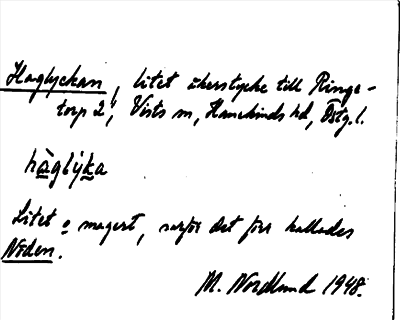 Haglyckan, litet åkerstycke till Ringe-
torp 2, Vists sn, Hanekinds hd, Östg. l.
hàglýka
Litet o magert, varför det förr kallades
Nöden.
M. Nordlund 1948.